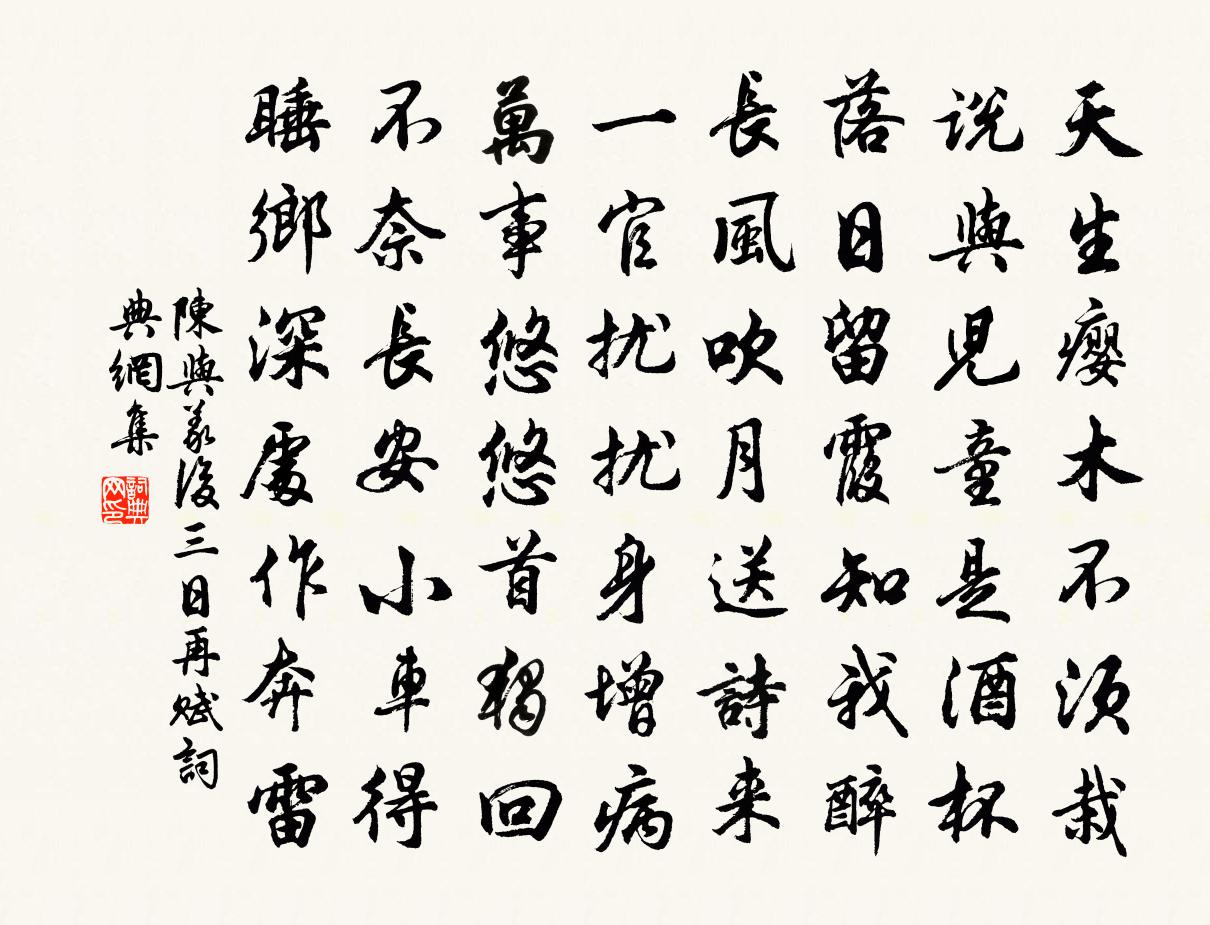 天生瘿木不須栽
説與兒童是酒杯
落日留霞知我醉
長風吹月送詩来
一官扰扰身增病
萬事悠悠首獨回
不奈長安小車得
睡鄉深處作奔雷
陳與義後三日再赋詞
典網集
詞典
网印